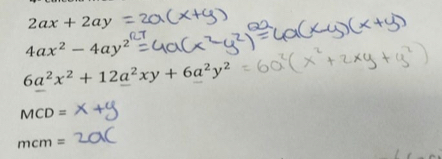 2ax + 2ay = 2a(x+y)
4ax² − 4ay² = 4a(x²-y²) = 4a(x-y)(x+y)
6a²x² + 12a²xy + 6a²y² = 6a²(x²+2xy+y²)
MCD = x+y
mcm = 2a(